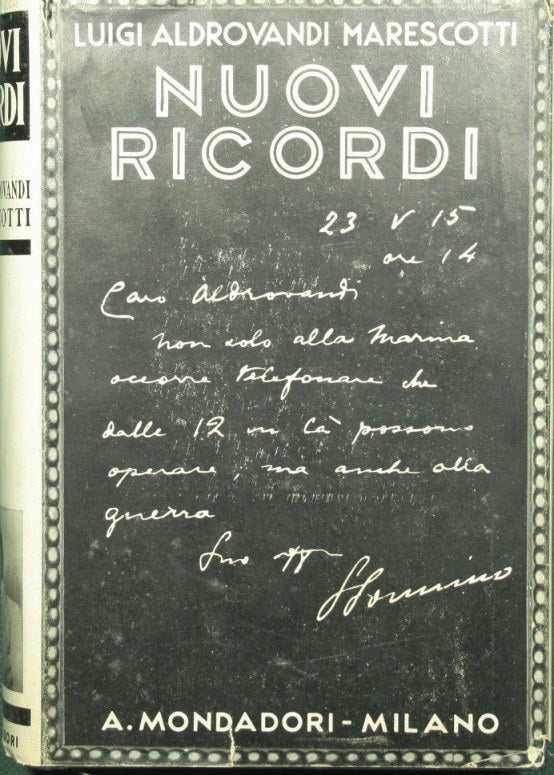 LUIGI ALDROVANDI MARESCOTTI
NUOVI
RICORDI
23 V 15
ore 14
Caro Aldrovandi
non solo alla Marina
occorre telefonare che
dalle 12 in là possono
operare, ma anche alla
guerra
Suo aff
SSonnino
A. MONDADORI - MILANO
OVI
RDI
OVANDI
COTTI
ORI